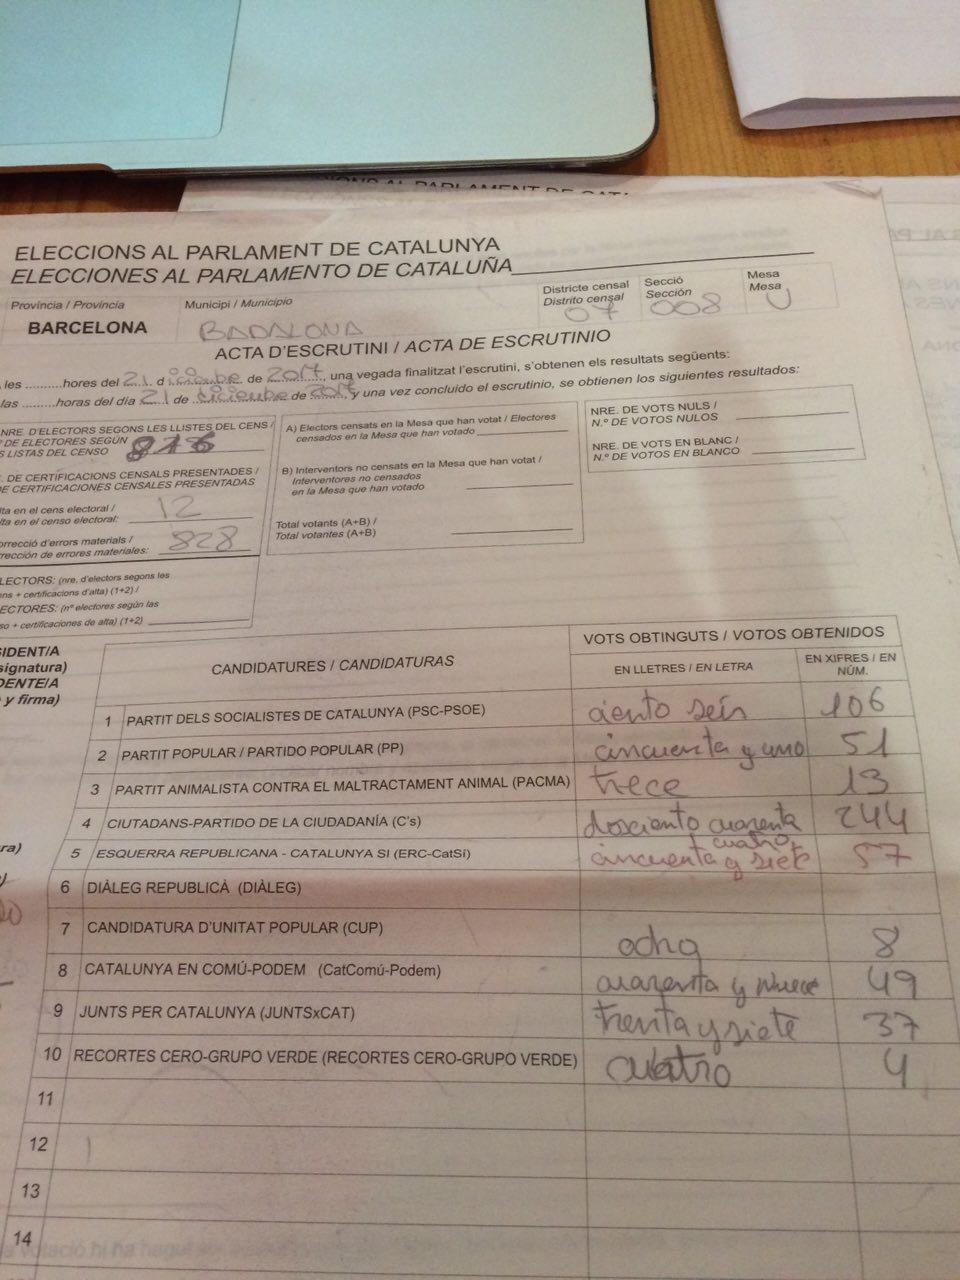 ELECCIONS AL PARLAMENT DE CATALUNYA
ELECCIONES AL PARLAMENTO DE CATALUÑA
Província / Provincia
BARCELONA
Municipi / Municipio
BADALONA
Districte censal
Distrito censal
07
Secció
Sección
008
Mesa
Mesa
U
ACTA D'ESCRUTINI / ACTA DE ESCRUTINIO
les ..........hores del 21 d diciembre de 2017, una vegada finalitzat l'escrutini, s'obtenen els resultats següents:
las .........horas del día 21 de diciembre de 2017 y una vez concluido el escrutinio, se obtienen los siguientes resultados:
NRE. D'ELECTORS SEGONS LES LLISTES DEL CENS /
DE ELECTORES SEGÚN
LISTAS DEL CENSO 816
DE CERTIFICACIONS CENSALS PRESENTADES /
DE CERTIFICACIONES CENSALES PRESENTADAS
lta en el cens electoral /
lta en el censo electoral: 12
orrecció d'errors materials /
rrección de errores materiales: 828
LECTORS: (nre. d'electors segons les
ens + certificacions d'alta) (1+2) /
ECTORES: (nº electores según las
so + certificaciones de alta) (1+2)
A) Electors censats en la Mesa que han votat / Electores
censados en la Mesa que han votado
B) Interventors no censats en la Mesa que han votat /
Interventores no censados
en la Mesa que han votado
Total votants (A+B) /
Total votantes (A+B)
NRE. DE VOTS NULS /
N.º DE VOTOS NULOS
NRE. DE VOTS EN BLANC /
N.º DE VOTOS EN BLANCO
SIDENT/A
signatura)
DENTE/A
y firma)
CANDIDATURES / CANDIDATURAS
VOTS OBTINGUTS / VOTOS OBTENIDOS
EN LLETRES / EN LETRA
EN XIFRES / EN NÚM.
1 PARTIT DELS SOCIALISTES DE CATALUNYA (PSC-PSOE) ciento seis 106
2 PARTIT POPULAR / PARTIDO POPULAR (PP) cincuenta y uno 51
3 PARTIT ANIMALISTA CONTRA EL MALTRACTAMENT ANIMAL (PACMA) trece 13
4 CIUTADANS-PARTIDO DE LA CIUDADANÍA (C's) dosciento cuarenta y cuatro 244
5 ESQUERRA REPUBLICANA - CATALUNYA SI (ERC-CatSí) cincuenta y siete 57
6 DIÀLEG REPUBLICÀ (DIÀLEG)
7 CANDIDATURA D'UNITAT POPULAR (CUP) ocho 8
8 CATALUNYA EN COMÚ-PODEM (CatComú-Podem) cuarenta y nueve 49
9 JUNTS PER CATALUNYA (JUNTSxCAT) trenta y siete 37
10 RECORTES CERO-GRUPO VERDE (RECORTES CERO-GRUPO VERDE) cuatro 4
11
12
13
14